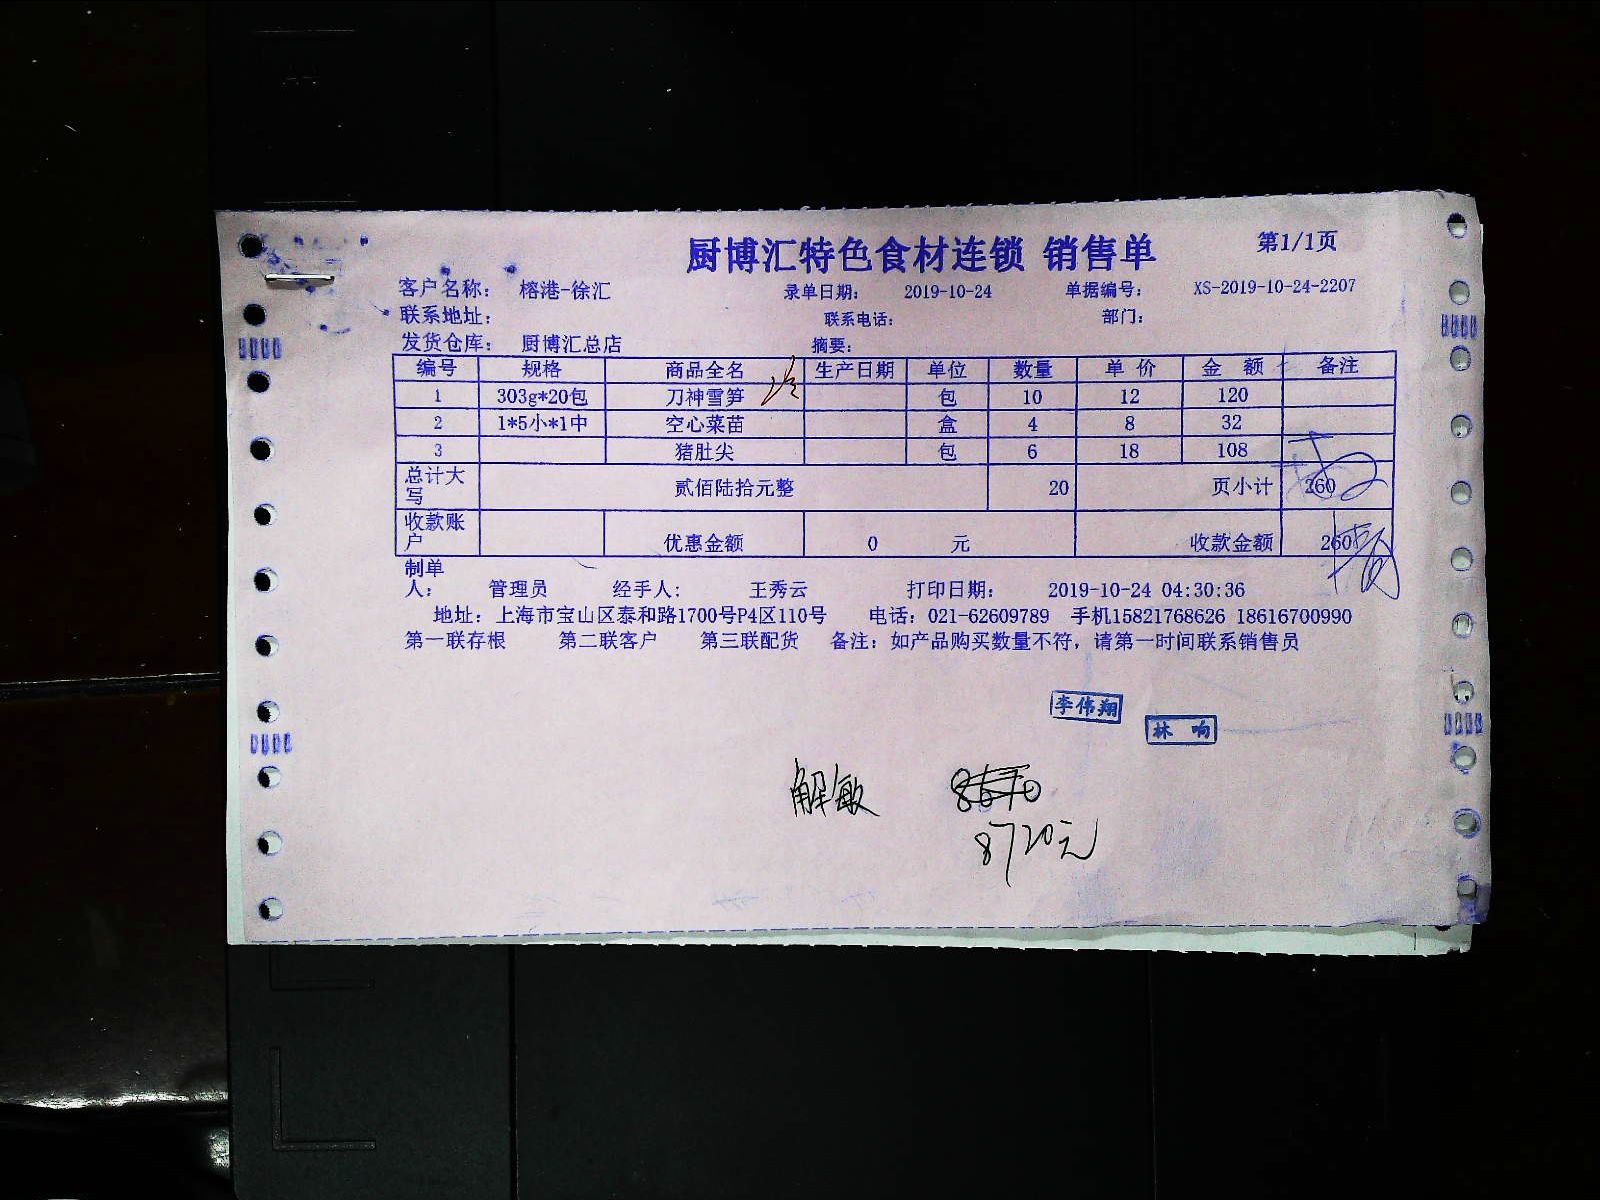 厨博汇特色食材连锁 销售单 第1/1页
客户名称： 榕港-徐汇 录单日期： 2019-10-24 单据编号： XS-2019-10-24-2207
联系地址： 联系电话： 部门：
发货仓库： 厨博汇总店 摘要：
编号 规格 商品全名 生产日期 单位 数量 单价 金额 备注
1 303g*20包 刀神雪笋 包 10 12 120
2 1*5小*1中 空心菜苗 盒 4 8 32
3 猪肚尖 包 6 18 108
总计大写 贰佰陆拾元整 20 页小计 260
收款账户 优惠金额 0 元 收款金额 260
制单人： 管理员 经手人： 王秀云 打印日期： 2019-10-24 04:30:36
地址：上海市宝山区泰和路1700号P4区110号 电话：021-62609789 手机15821768626 18616700990
第一联存根 第二联客户 第三联配货 备注：如产品购买数量不符，请第一时间联系销售员
李伟翔
林响
解敏
8720元